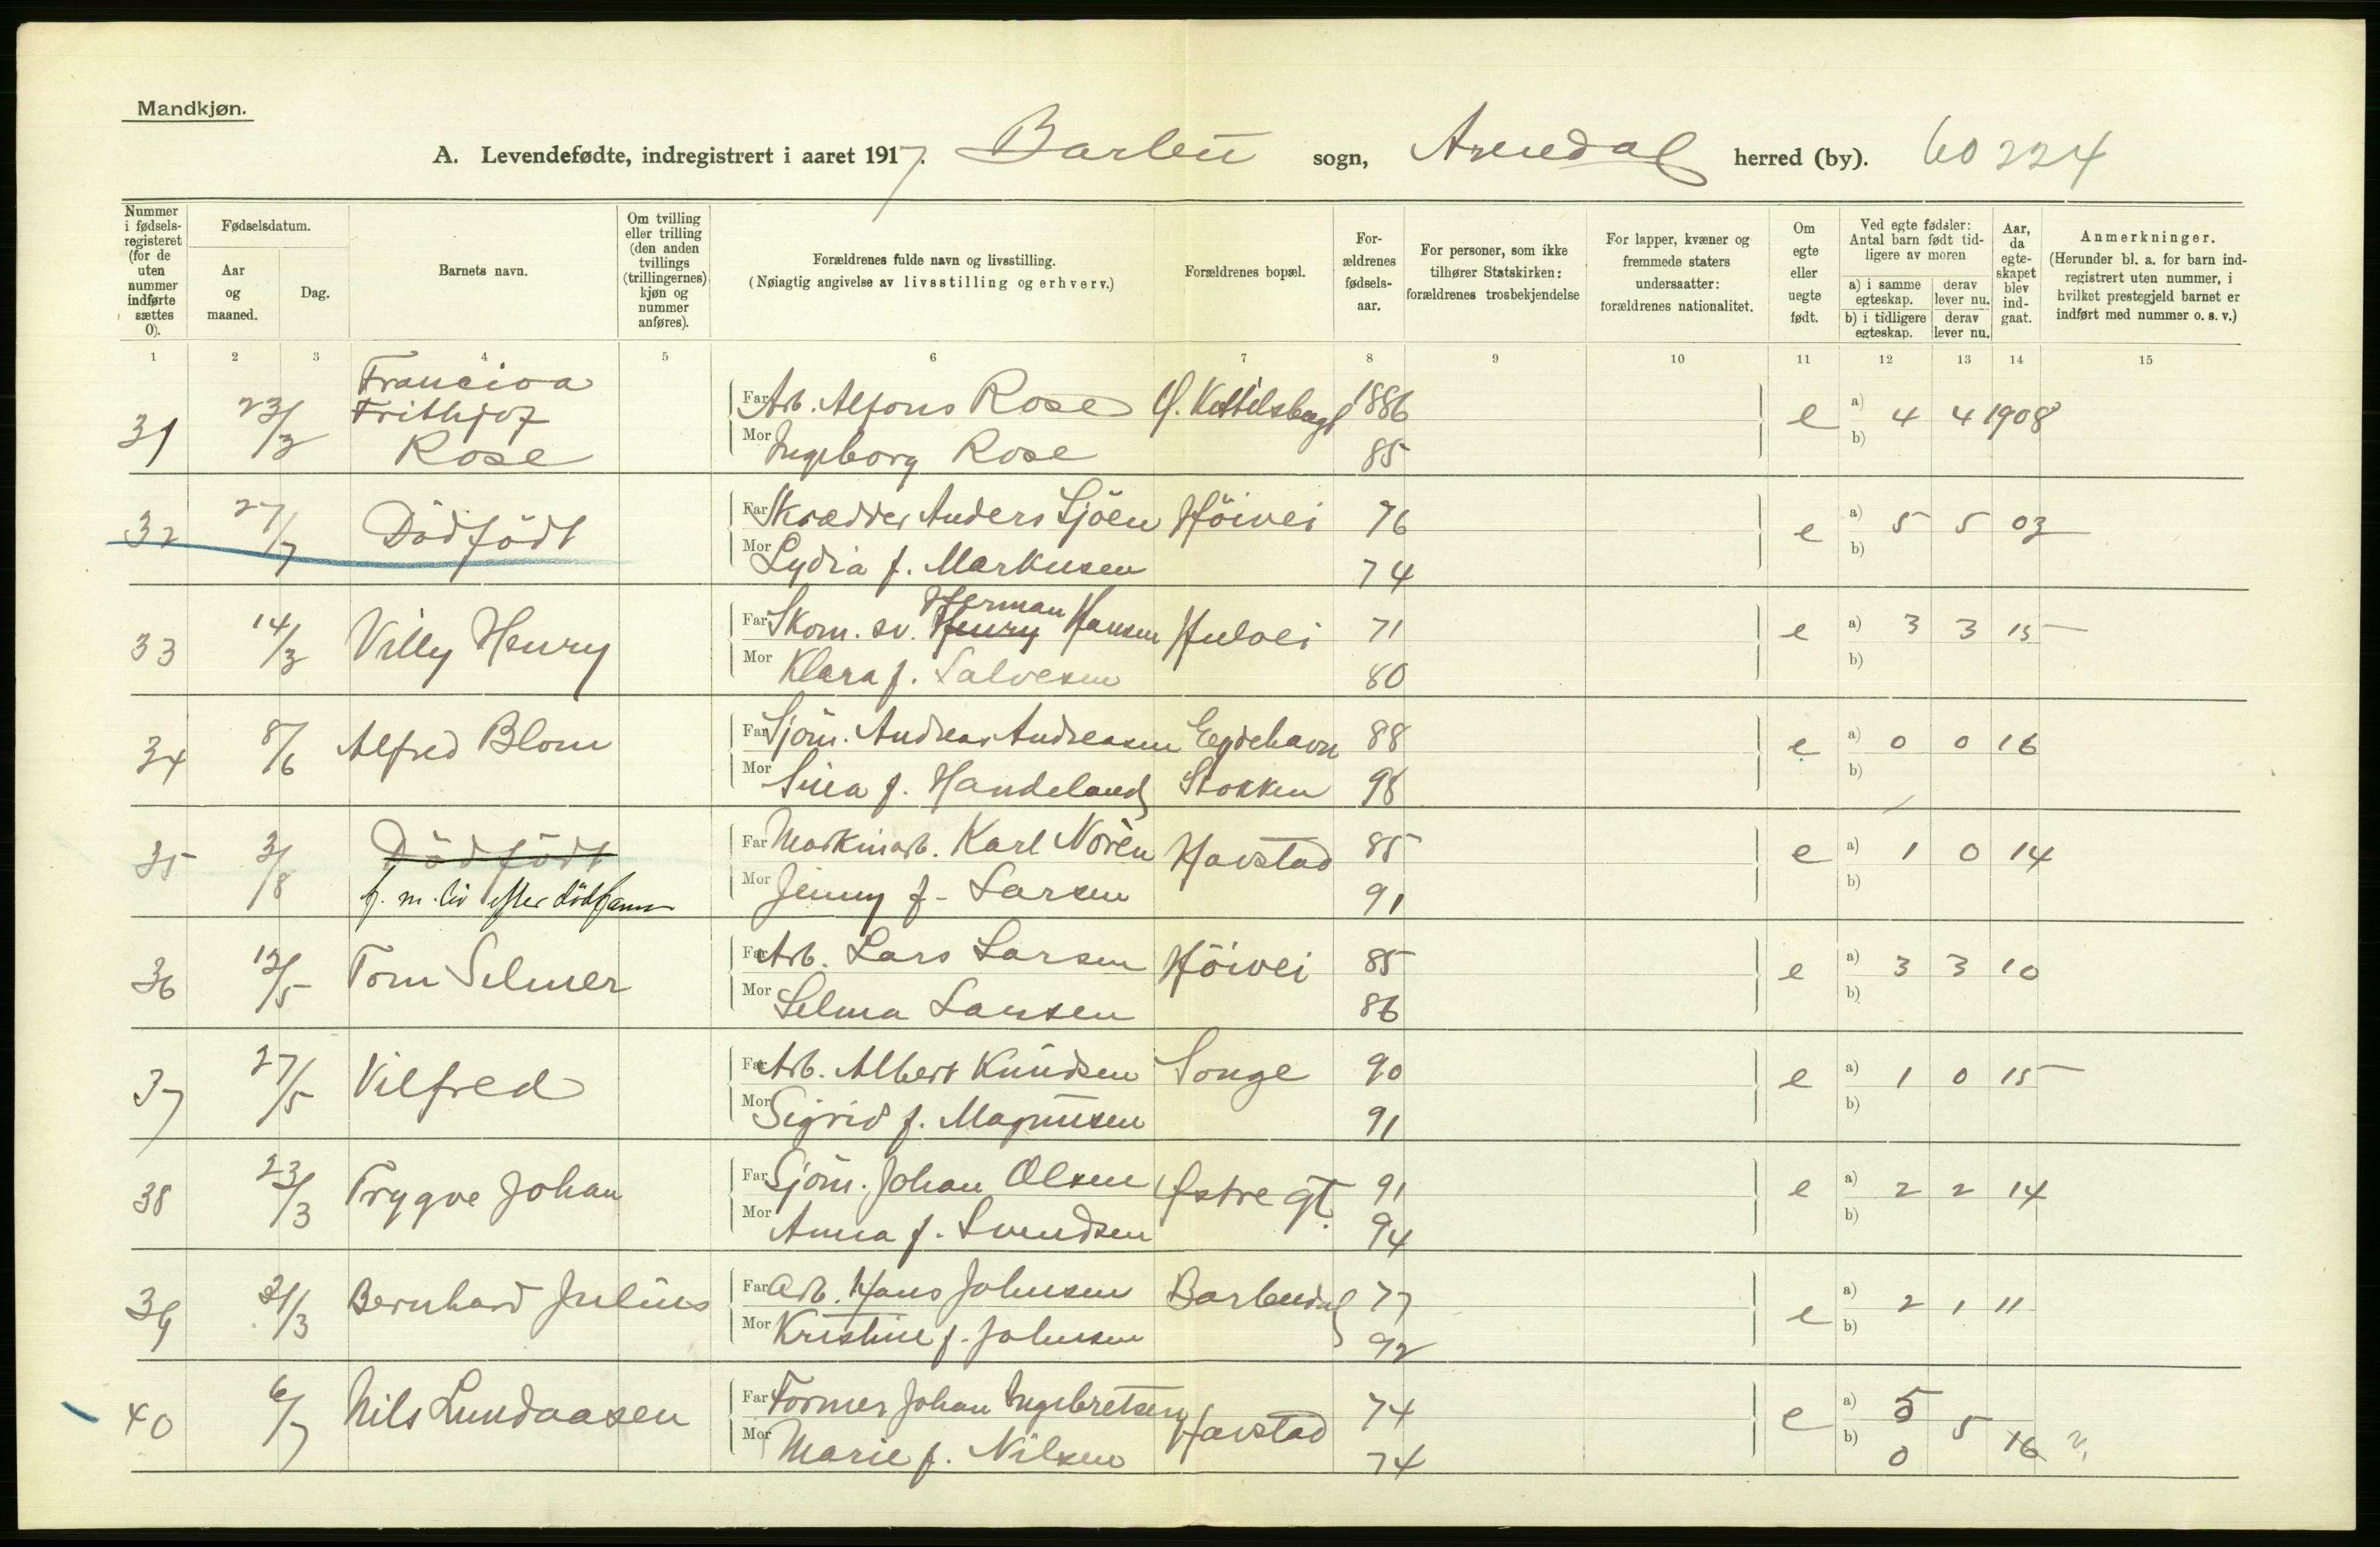 Mandkjøn.
A. Levendefødte, indregistrert i aaret 1917. Barbu sogn, Arendal herred (by). 60224
Nummer i fødselsregisteret (for de uten nummer indførte sættes 0).
Fødselsdatum.
Aar og maaned.
Dag.
Barnets navn.
Om tvilling eller trilling (den anden tvillings (trillingernes) kjøn og nummer anføres).
Forældrenes fulde navn og livsstilling.
(Nøiagtig angivelse av livsstilling og erhverv.)
Forældrenes bopæl.
Forældrenes fødselsaar.
For personer, som ikke tilhører Statskirken: forældrenes trosbekjendelse
For lapper, kvæner og fremmede staters undersaatter: forældrenes nationalitet.
Om egte eller uegte født.
Ved egte fødsler: Antal barn født tidligere av moren
a) i samme egteskap.
derav lever nu.
b) i tidligere egteskap.
derav lever nu.
Aar, da egteskapet blev indgaat.
Anmerkninger.
(Herunder bl. a. for barn indregistrert uten nummer, i hvilket prestegjeld barnet er indført med nummer o. s. v.)
1 2 3 4 5 6 7 8 9 10 11 12 13 14 15
31 23/3 Frithjof Rose
Far Arb. Alfons Rose 1886 e a) 4 4 1908
Mor Ingeborg Rose 85 b)
32 27/7 Dödfödt
Far Skrædder Anders Sjöen Höivei 76 e a) 5 5 03
Mor Lydia f. Markusen 74 b)
33 14/3 Villy Henry
Herman
Far Skom. sv. Henry Hansen Hulvei 71 e a) 3 3 15
Mor Klara f. Salvesen 80 b)
34 8/6 Alfred Blom
Far Sjöm. Andreas Andreasen Eydehavn 88 e a) 0 0 16
Mor Sina f. Handeland Stokken 98 b)
35 3/8 Dödfödt
f. m. liv efter dödsanm
Far Maskinarb. Karl Norèn Havstad 85 e a) 1 0 14
Mor Jenny f. Larsen 91 b)
36 12/5 Tom Selmer
Far Arb. Lars Larsen Höivei 85 e a) 3 3 10
Mor Selma Larsen 86 b)
37 27/5 Vilfred
Far Arb. Albert Knudsen Songe 90 e a) 1 0 15
Mor Sigrid f. Magnusen 91 b)
38 23/3 Trygve Johan
Far Sjöm. Johan Olsen Østre gt. 91 e a) 2 2 14
Mor Anna f. Svendsen 94 b)
39 31/3 Bernhard Julius
Far Arb. Hans Johnsen Barbudal 77 e a) 2 1 11
Mor Kristine f. Johnsen 92 b)
40 6/7 Nils Lundaasen
Far Former Johan Ingebretsen Havstad 74 e a) 5 5 16 ?
Mor Marie f. Nilsen 74 b) 0